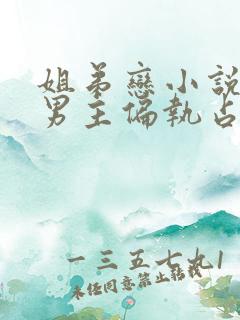 姐弟戀小說
男主偏執占
一三五七九1
未经同意禁止转载